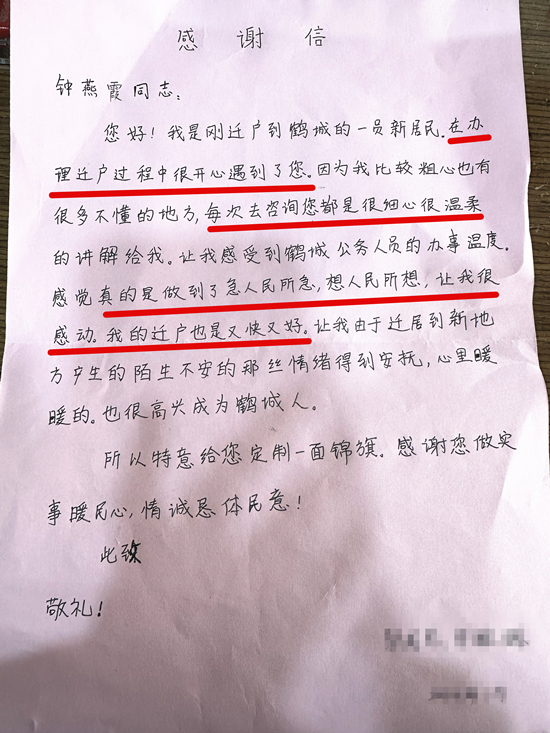 感谢信
钟燕霞同志：
您好！我是刚迁户到鹤城的一员新居民。在办
理迁户过程中很开心遇到了您。因为我比较粗心也有
很多不懂的地方，每次去咨询您都是很细心很温柔
的讲解给我。让我感受到鹤城公务人员的办事温度。
感觉真的是做到了急人民所急，想人民所想，让我很
感动。我的迁户也是又快又好。让我由于迁居到新地
方产生的陌生不安的那丝情绪得到安抚，心里暖
暖的。也很高兴成为鹤城人。
所以特意给您定制一面锦旗。感谢您做实
事暖民心，情诚恳体民意！
此致
敬礼！